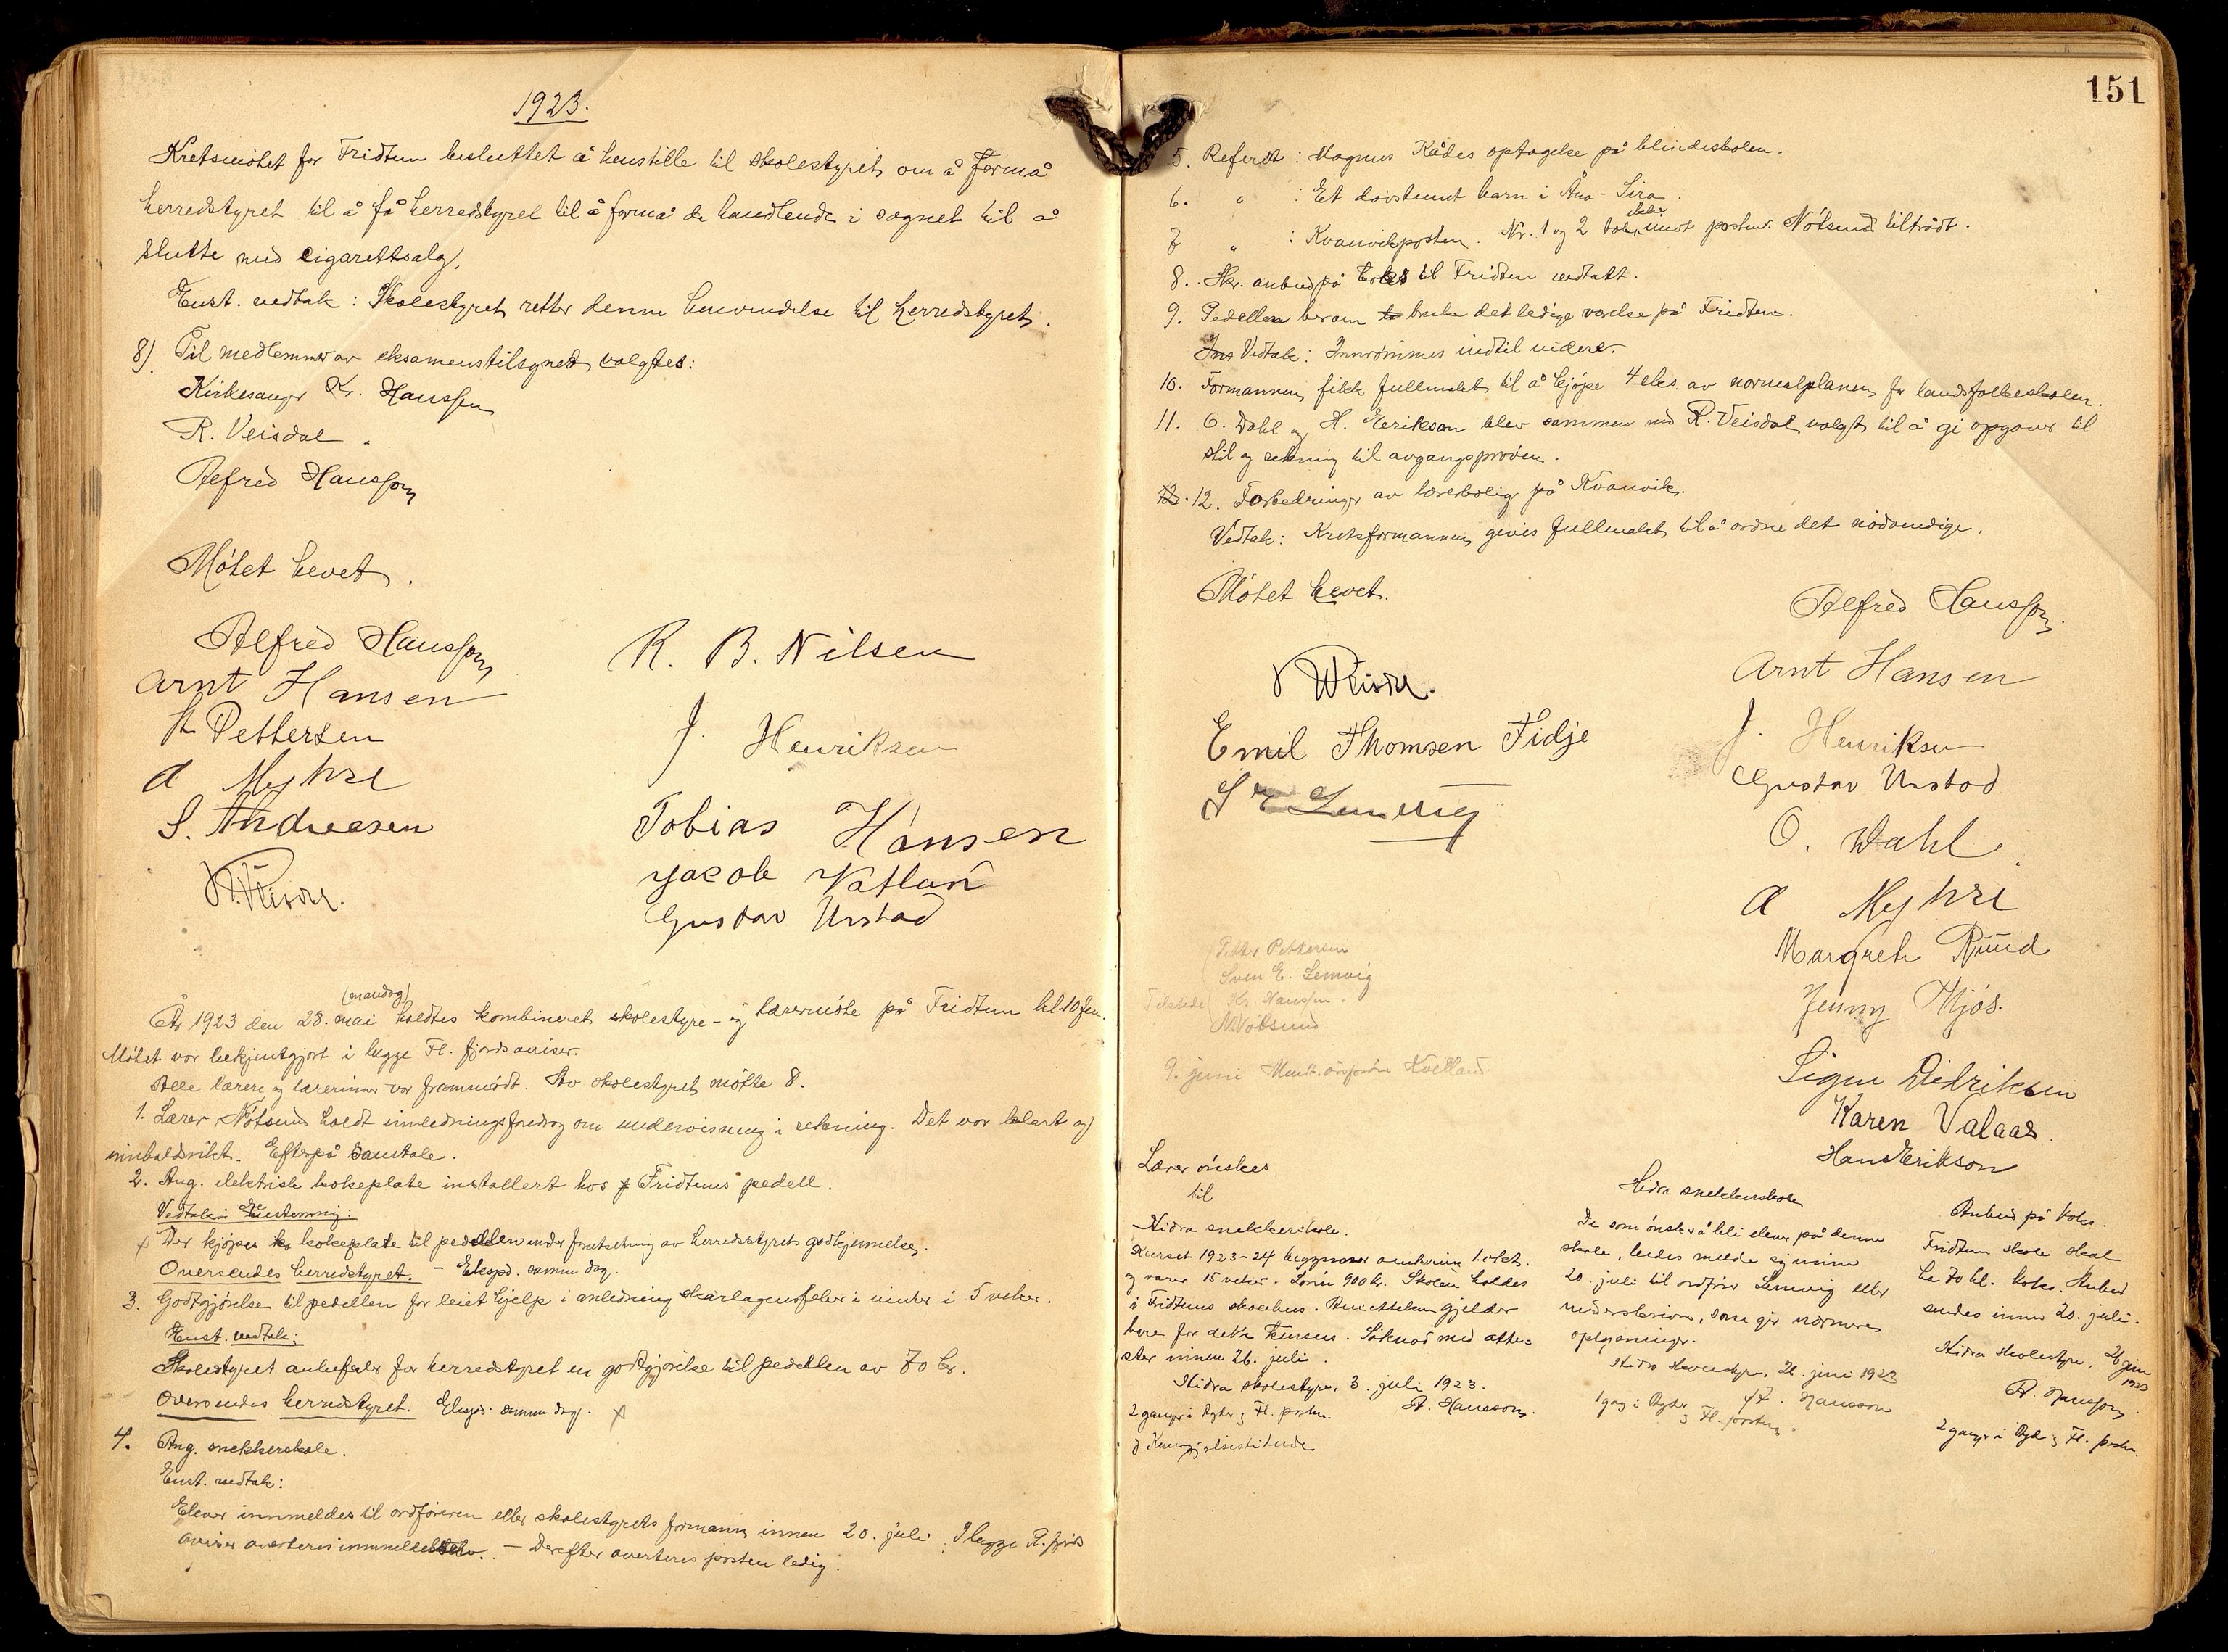 1923.
Kretsmøtet for Fridtun besluttet å henstille til skolestyret om å formå
herredstyret til å få herredstyret til å formå de handlende i sognet til å
slutte med cigarettsalg.
Enst. vedtak: Skolestyret retter denne henvendelse til herredstyret.
8) Til medlemmer av eksamenstilsynet valgtes:
Kirkesanger Kr. Hanssen
R. Veisdal.
Alfred Hansson
Møtet hevet.
Alfred Hansson
Arnt Hansen
Pettersen
A Myhre
S. Andreasen
R. B. Nilsen
J. Henriksen
Tobias Hansen
Jacob Vatland
Gustav Urstad
(mandag)
År 1923 den 28. mai holdtes kombineret skolestyre- og lærermøte på Fridtun kl. 10 fm.
Møtet var bekjentgjort i begge Fl. fjords aviser.
Alle lærere og lærerinner var frammødt. Av skolestyret møtte 8.
1. Lærer Nøtsund holdt innledningsforedrag om undervisning i rekning. Det var klart og
innholdsrikt. Efterpå samtale.
2. Ang. elektrisk kokeplate installert hos Fridtuns pedell.
Vedtak: Enstemmig:
x Der kjøpes kokeplate til pedellen under forutsetning av herredsstyrets godkjennelse.
Oversendes herredstyret. – Eksped. samme dag.
3. Godtgjørelse til pedellen for leiet hjelp i anledning skarlagensfeber i vinter i 5 veker.
Enst. vedtak:
Skolestyret anbefaler for herredstyret en godtgjørelse til pedellen av 70 kr.
Oversendes herredstyret. Eksped. samme dag. x
4. Ang. snekkerskole.
Enst. vedtak:
Elever innmeldes til ordføreren eller skolestyrets formann innen 20. juli. I begge Fl. fjords
aviser averteres – Derefter averteres posten ledig.
151
5. Referat: Magnus Rådes optagelse på blindeskolen.
6. " : Et døvstumt barn i Åna-Sira.
7 " : Kvanvikposten. Nr. 1 og 2 ikke imot posten. Nøtsund tiltrådt.
8. Skr. anbud på koks til Fridtun vedtatt.
9. Pedellen ber om bruke det ledige værelse på Fridtun.
Vedtak: Innrømmes indtil videre.
10. Formannen fikk fullmakt til å kjøpe 4 eks. av normalplanen for landsfolkeskolen.
11. O. Dahl og H. Eerikson blev sammen med R. Veisdal valgt til å gi opgaver til
stil og rekning til avgangsprøven.
12. Forbedringer av lærerbolig på Kvanvik.
Vedtak: Kretsformannen gives fullmakt til å ordne det nødvendige.
Møtet hevet.
Emil Thomsen Fidje
S E Lemvig
Alfred Hansson
Arnt Hansen
J. Henriksen
Gustav Urstad
O. Dahl
A Myhre
Margrete Ruud
Jenny Mjøs.
Signe Didriksen
Karen Valaas.
Hans Erikson
Petter Pettersen
Sven E. Lemvig
Tilstede Kr. Hanssen.
Nøtsund
9. juni
Lærer ønskes
til
Hidra snekkerskole.
Kurset 1923-24 begynner omkring 1. okt.
og varer 15 veker. Lønn 900 kr. Skolen holdes
i Fridtuns skolehus. Ansettelsen gjelder
bare for dette kursus. Søknad med atte=
ster innen 26. juli.
Hidra skolestyre, 3. juli 1923.
A. Hansson.
2 ganger i Agder og Fl. posten.
Hidra snekkerskole
De som ønsker å bli elever på denne
skole, bedes melde sig innen
20. juli til ordfører Lemvig eller
undertegnede, som gir nærmere
oplysninger.
Hidra skolestyre, 26. juni 1923
A. Hansson
1 gang i Agder
og Fl. posten.
Anbud på koks.
Fridtun skole skal
ha 70 hl. koks. Anbud
sendes innen 20. juli.
Hidra skolestyre, 26 juni
1923
A. Hansson.
2 ganger i Agd. og Fl. posten.